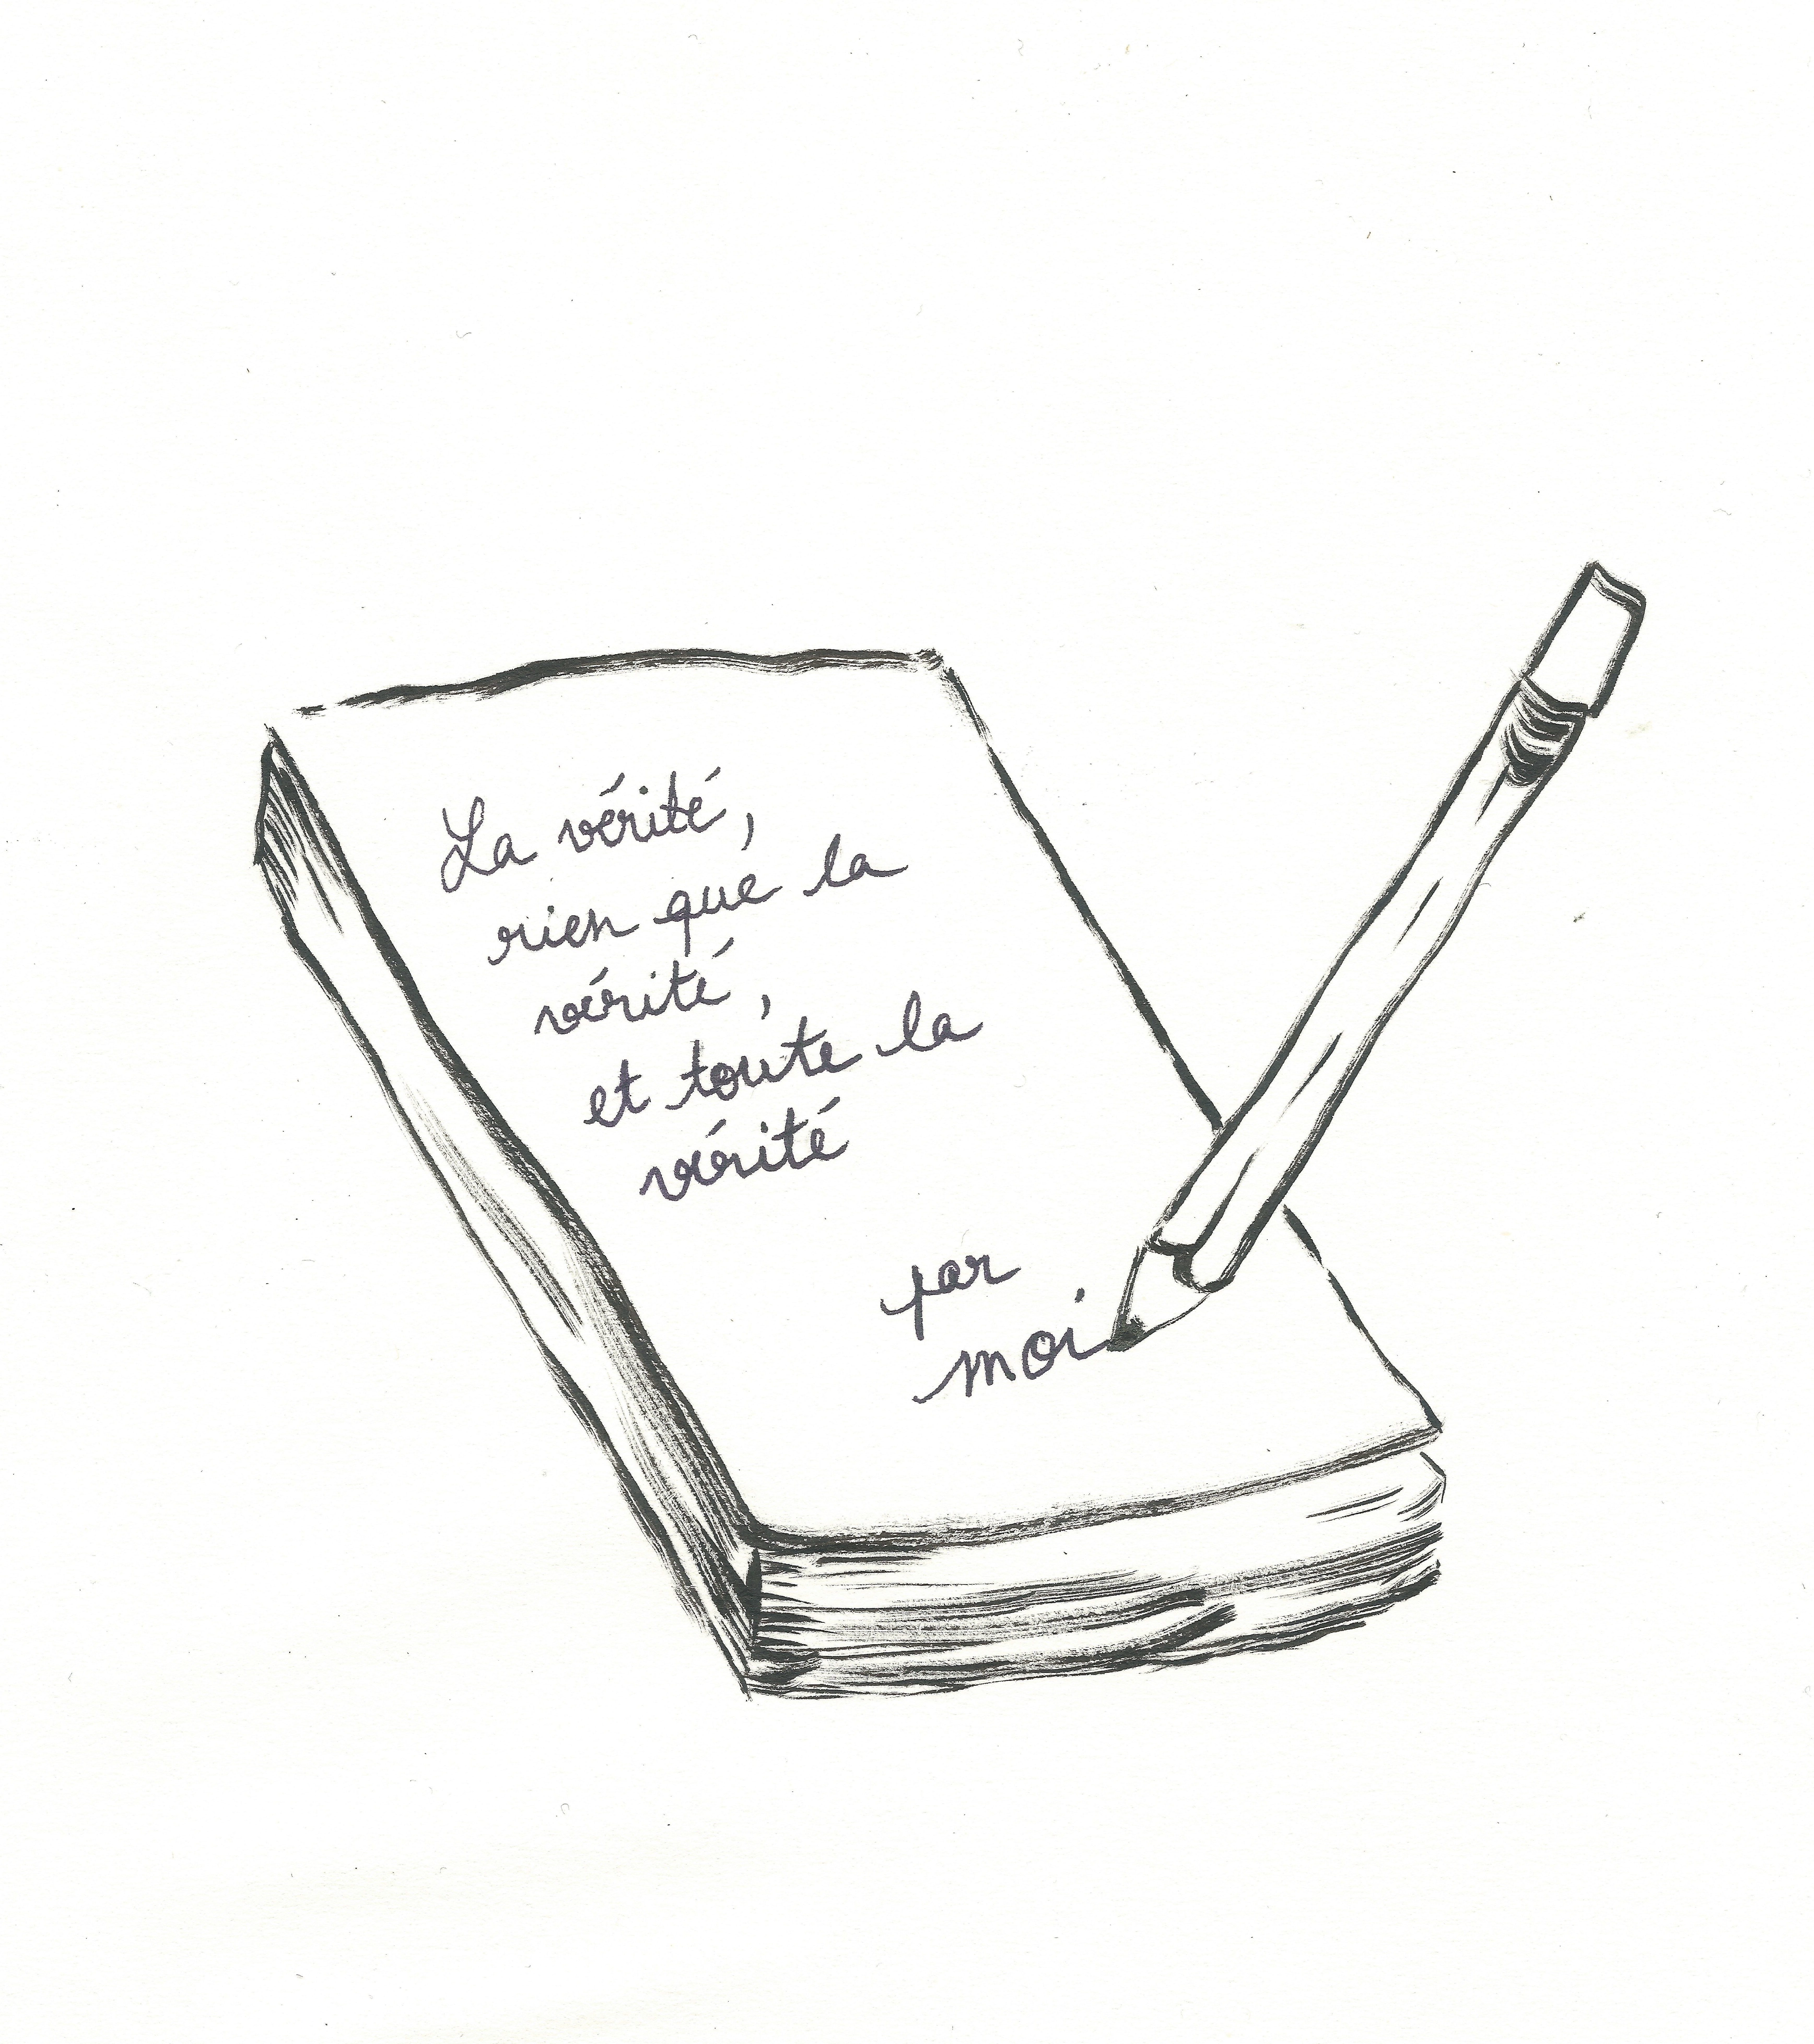 La vérité,
rien que la
vérité,
et toute la
vérité
par
moi